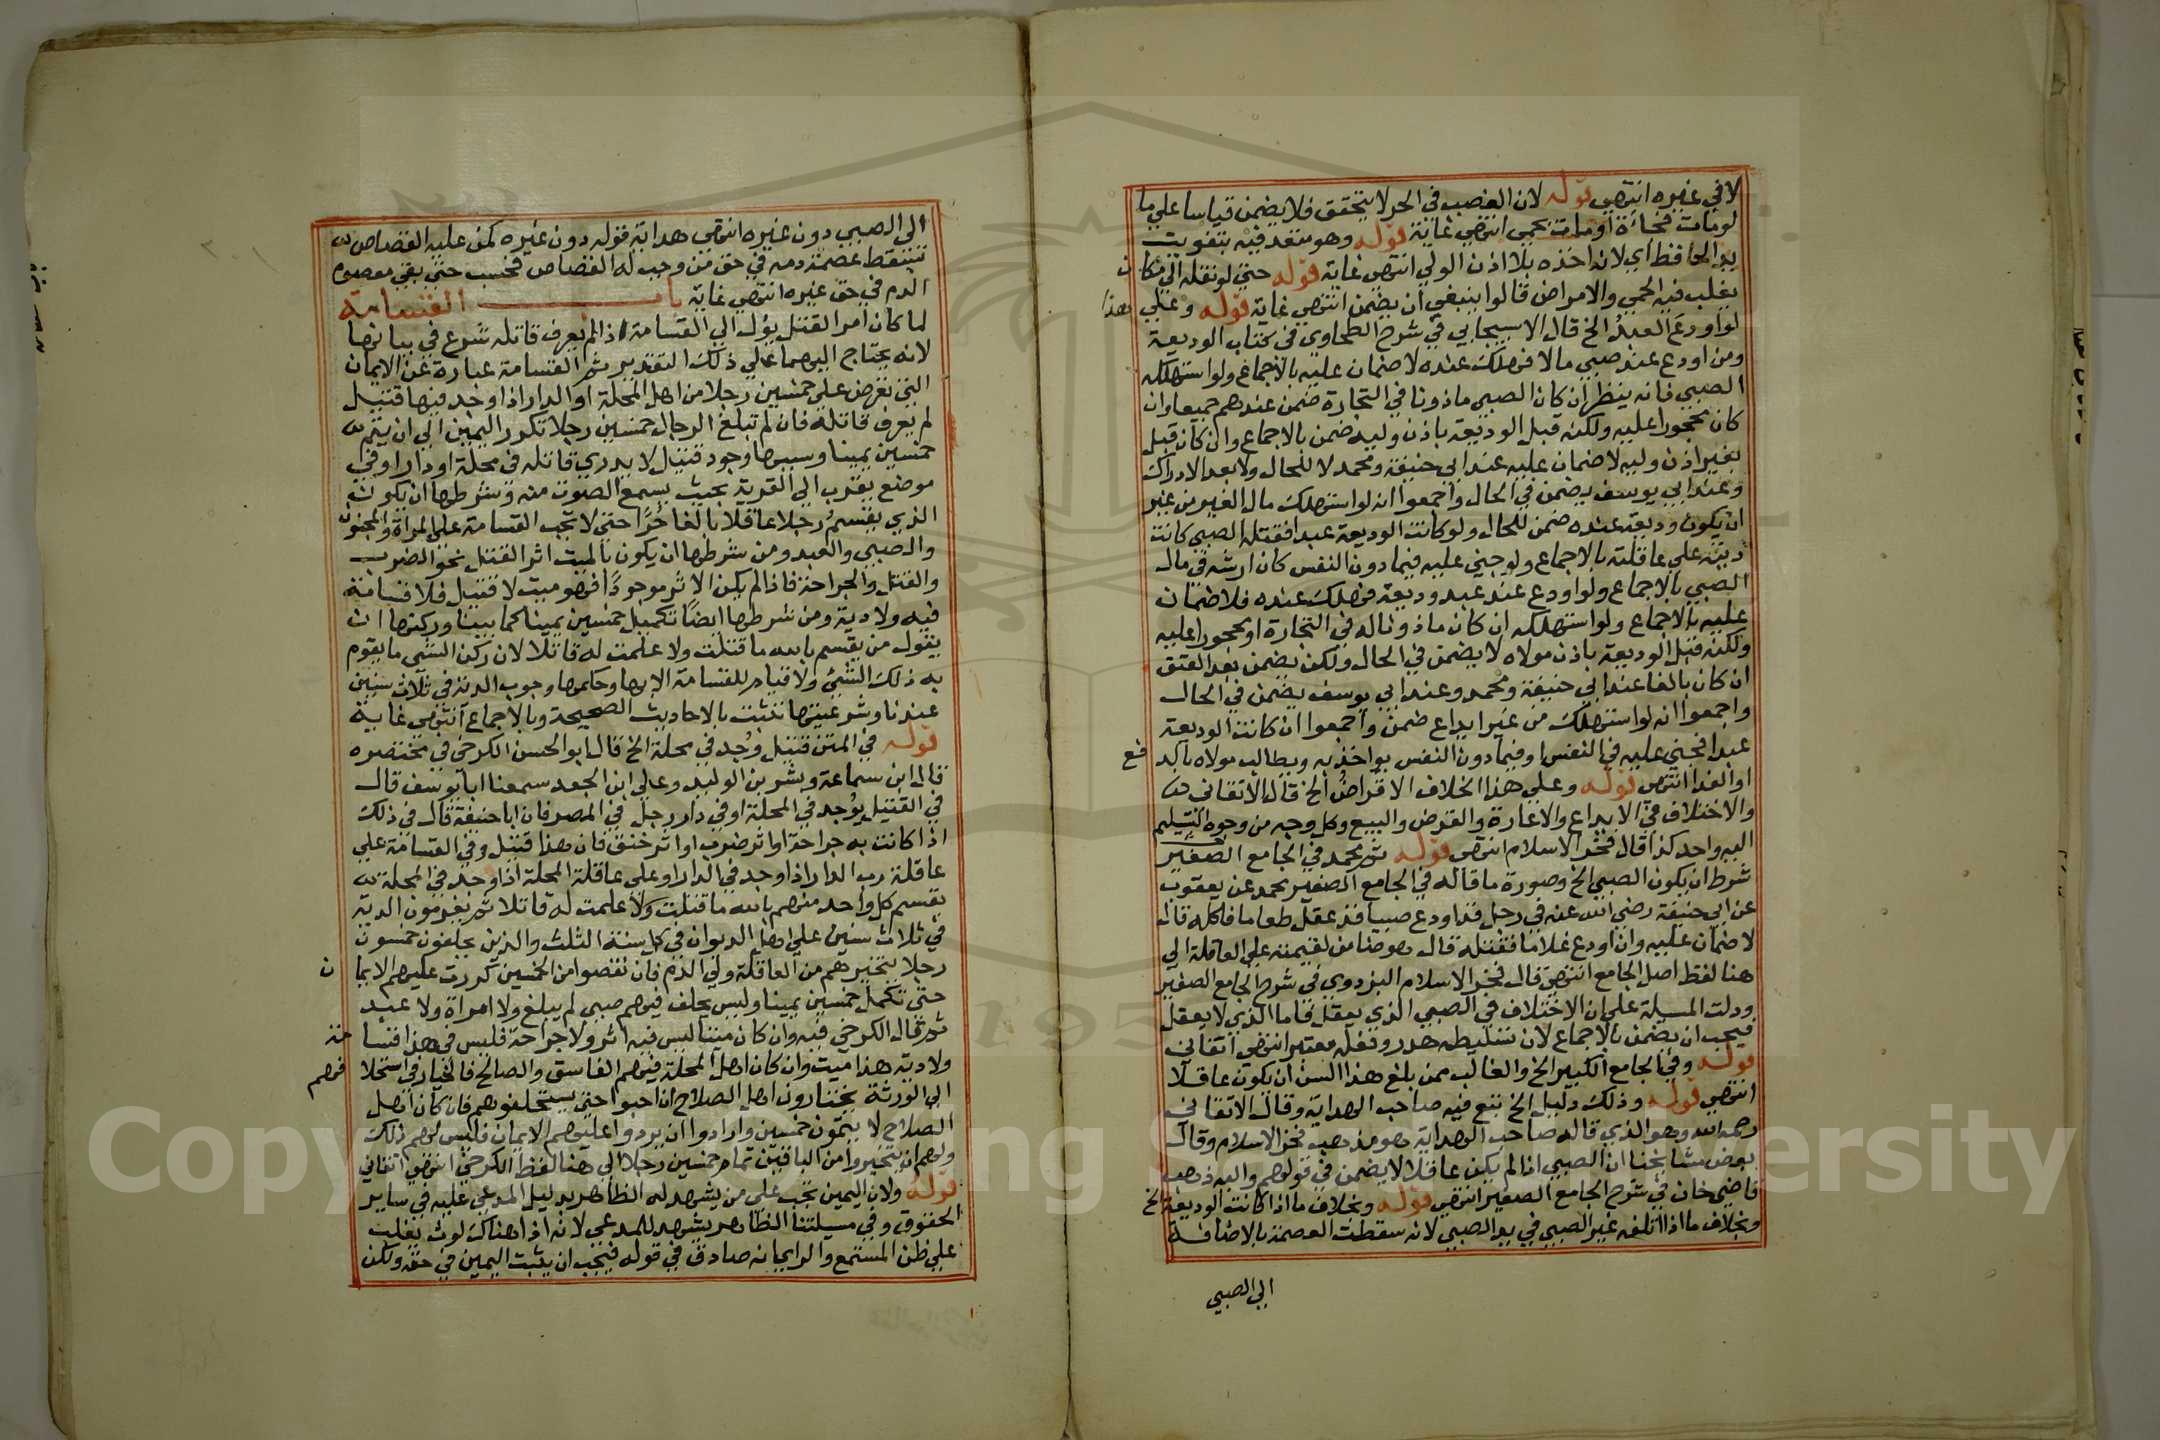 لا في غيره انتهى قوله لان الغصب في الحر لا يتحقق فلا يضمن قياسا على ما
لو مات فجاءة او مات بحمى انتهى غاية قوله وهو متعد فيه بتفويت
يد الحافظ اي لانه اخذه بلا اذن الولي انتهى غاية قوله حتى لو نقله الى مكان
يغلب فيه الحمى والامراض قالوا ينبغي ان يضمن انتهى غاية قوله وعلى هذا
لو اودع العبد الخ قال الاسبيجابي في شرح الطحاوي في كتاب الوديعة
ومن اودع عند صبي مالا فهلك عنده لا ضمان عليه بالاجماع ولو استهلكه
الصبي فانه ينظر ان كان الصبي ماذونا في التجارة ضمن عندهم جميعا وان
كان محجورا عليه ولكنه قبل الوديعة باذن وليه ضمن بالاجماع وان كان قبل
بغير اذن وليه لا ضمان عليه عند ابي حنيفة ومحمد لا للحال ولا بعد الادراك
وعند ابي يوسف يضمن في الحال واجمعوا انه لو استهلك مال الغير من غير
ان يكون وديعة عنده ضمن للحال ولو كانت الوديعة عبدا فقتله الصبي كانت
ديته على عاقلته بالاجماع ولو جنى عليه فيما دون النفس كان ارشه في مال
الصبي بالاجماع ولو اودع عند عبد وديعة فهلك عنده فلا ضمان
عليه بالاجماع ولو استهلكه ان كان ماذونا له في التجارة او محجورا عليه
ولكنه قبل الوديعة باذن مولاه لا يضمن في الحال ولكن يضمن بعد العتق
ان كان بالغا عند ابي حنيفة ومحمد وعند ابي يوسف يضمن في الحال
واجمعوا انه لو استهلك من غير ايداع ضمن واجمعوا ان كانت الوديعة
عبدا فجنى عليه في النفس او فيما دون النفس يواخذ به ويطالب مولاه بالد فع
او الفدا انتهى قوله وعلى هذا الخلاف الاقراض الخ قال الاتقاني
والاختلاف في الايداع والاعارة والقرض والبيع وكل وجه من وجوه التسليم
اليه واحد كذا قال فخر الاسلام انتهى قوله ثم محمد في الجامع الصغير
شرط ان يكون الصبي الخ وصورة ما قاله في الجامع الصغير محمد عن يعقوب
عن ابي حنيفة رضي الله عنه في رجل قد اودع صبيا قد عقل طعاما فاكله قال
لا ضمان عليه وان اودع غلاما فقتله قال هو ضامن لقيمته على العاقلة الى
هنا لفظ اصل الجامع انتهى قال فخر الاسلام البزدوي في شرح الجامع الصغير
ودلت المسيلة على ان الاختلاف في الصبي الذي يعقل فاما الذي لا يعقل
فيجب ان يضمن بالاجماع لان تسليطه هدر وفعله معتبر انتهى اتقاني
قوله وفي الجامع الكبير الخ والغالب ممن بلغ هذا السن ان يكون عاقلا
انتهى قوله وذلك دليل الخ تبع فيه صاحب الهداية وقال الاتقاني
رحمه الله وهو الذي قاله صاحب الهداية هو مذهب فخر الاسلام وقال
بعض مشايخنا ان الصبي اذا لم يكن عاقلا لا يضمن في قولهم واليه ذهب
قاضي خان في شرح الجامع الصغير انتهى قوله وبخلاف ما اذا كانت الوديعة الخ
وبخلاف ما اذا اتلفه غير الصبي في يد الصبي لانه سقطت العصمة بالاضافة
الى الصبي
الى الصبي دون غيره انتهى هداية قوله دون غيره كمن عليه القصاص
تسقط عصمة دمه في حق من وجب له القصاص فحسب حتى بقي معصوم
الدم في حق غيره انتهى غاية باب القسامة
لما كان امر القتل يؤل الى القسامة اذا لم يعرف قاتله شرع في بيانها
لانه يحتاج اليها على ذلك التقدير ثم القسامة عبارة عن الايمان
التي تعرض على خمسين رجلا من اهل المحلة او الدار اذا وجد فيها قتيل
لم يعرف قاتله فان لم تبلغ الرجال خمسين رجلا تكرر اليمين الى ان يتم
خمسين يمينا وسببها وجود قتيل لا يدري قاتله في محلة او دار او في
موضع يقرب الى القرية بحيث يسمع الصوت منه وشرطها ان يكون
الذي يقسم رجلا عاقلا بالغا حرا حتى لا تجب القسامة على المراة والمجنون
والصبي والعبد ومن شرطها ان يكون بالميت اثر القتل نحو الضرب
والقتل والجراحة فاذا لم يكن الاثر موجودا فهو ميت لا قتيل فلا قسامة
فيه ولا دية ومن شرطها ايضا تكميل خمسين يمينا كما بينا وركنها ان
يقول من يقسم بالله ما قتلت ولا علمت له قاتلا لان ركن الشي ما يقوم
به ذلك الشي ولا قيام للقسامة الا بها وحكمها وجوب الدية في ثلاث سنين
عندنا وشرعيتها تثبت بالاحاديث الصحيحة وبالاجماع انتهى غاية
قوله في المتن قتيل وجد في محلة الخ قال ابو الحسن الكرخي في مختصره
قال ابن سماعة وبشر بن الوليد وعلي ابن الجعد سمعنا ابا يوسف قال
في القتيل يوجد في المحلة او في دار رجل في المصر فان ابا حنيفة قال في ذلك
اذا كانت به جراحة او اثر ضرب او اثر خنق فان هذا قتيل وفي القسامة على
عاقلة رب الدار اذا وجد في الدار وعلى عاقلة المحلة اذا وجد في المحلة
يقسم كل واحد منهم بالله ما قتلت ولا علمت له قاتلا ثم يغرمون الدية
في ثلاث سنين على اهل الديوان في كل سنة الثلث والذين يحلفون خمسون
رجلا يتخيرهم من العاقلة ولي الدم فان نقصوا من الخمسين كررت عليهم الايما ن
حتى تكمل خمسين يمينا وليس يحلف فيهم صبي لم يبلغ ولا امراة ولا عبد
ثم قال الكرخي فيه وان كان ميتا ليس فيه اثر ولا جراحة فليس في هذا قسا مة
ولا دية هذا ميت وان كان اهل المحلة فيهم الفاسق والصالح فالخيار في استحلا فهم
الى الورثة يختارون اهل الصلاح ان احبوا حتى يستحلفوهم فان كان اهل
الصلاح لا يتمون خمسين وارادوا ان يردوا عليهم الايمان فليس لهم ذلك
ولهم ان يتخيروا من الباقين تمام خمسين رجلا الى هنا لفظ الكرخي انتهى اتقاني
قوله ولان اليمين تجب على من يشهد له الظاهر بدليل المدعى عليه في ساير
الحقوق وفي مسيلتنا الظاهر يشهد للمدعي لانه اذا هناك لوث يغلب
على ظن المستمع والرايي انه صادق في قوله فيجب ان يثبت اليمين في حقه ولكن